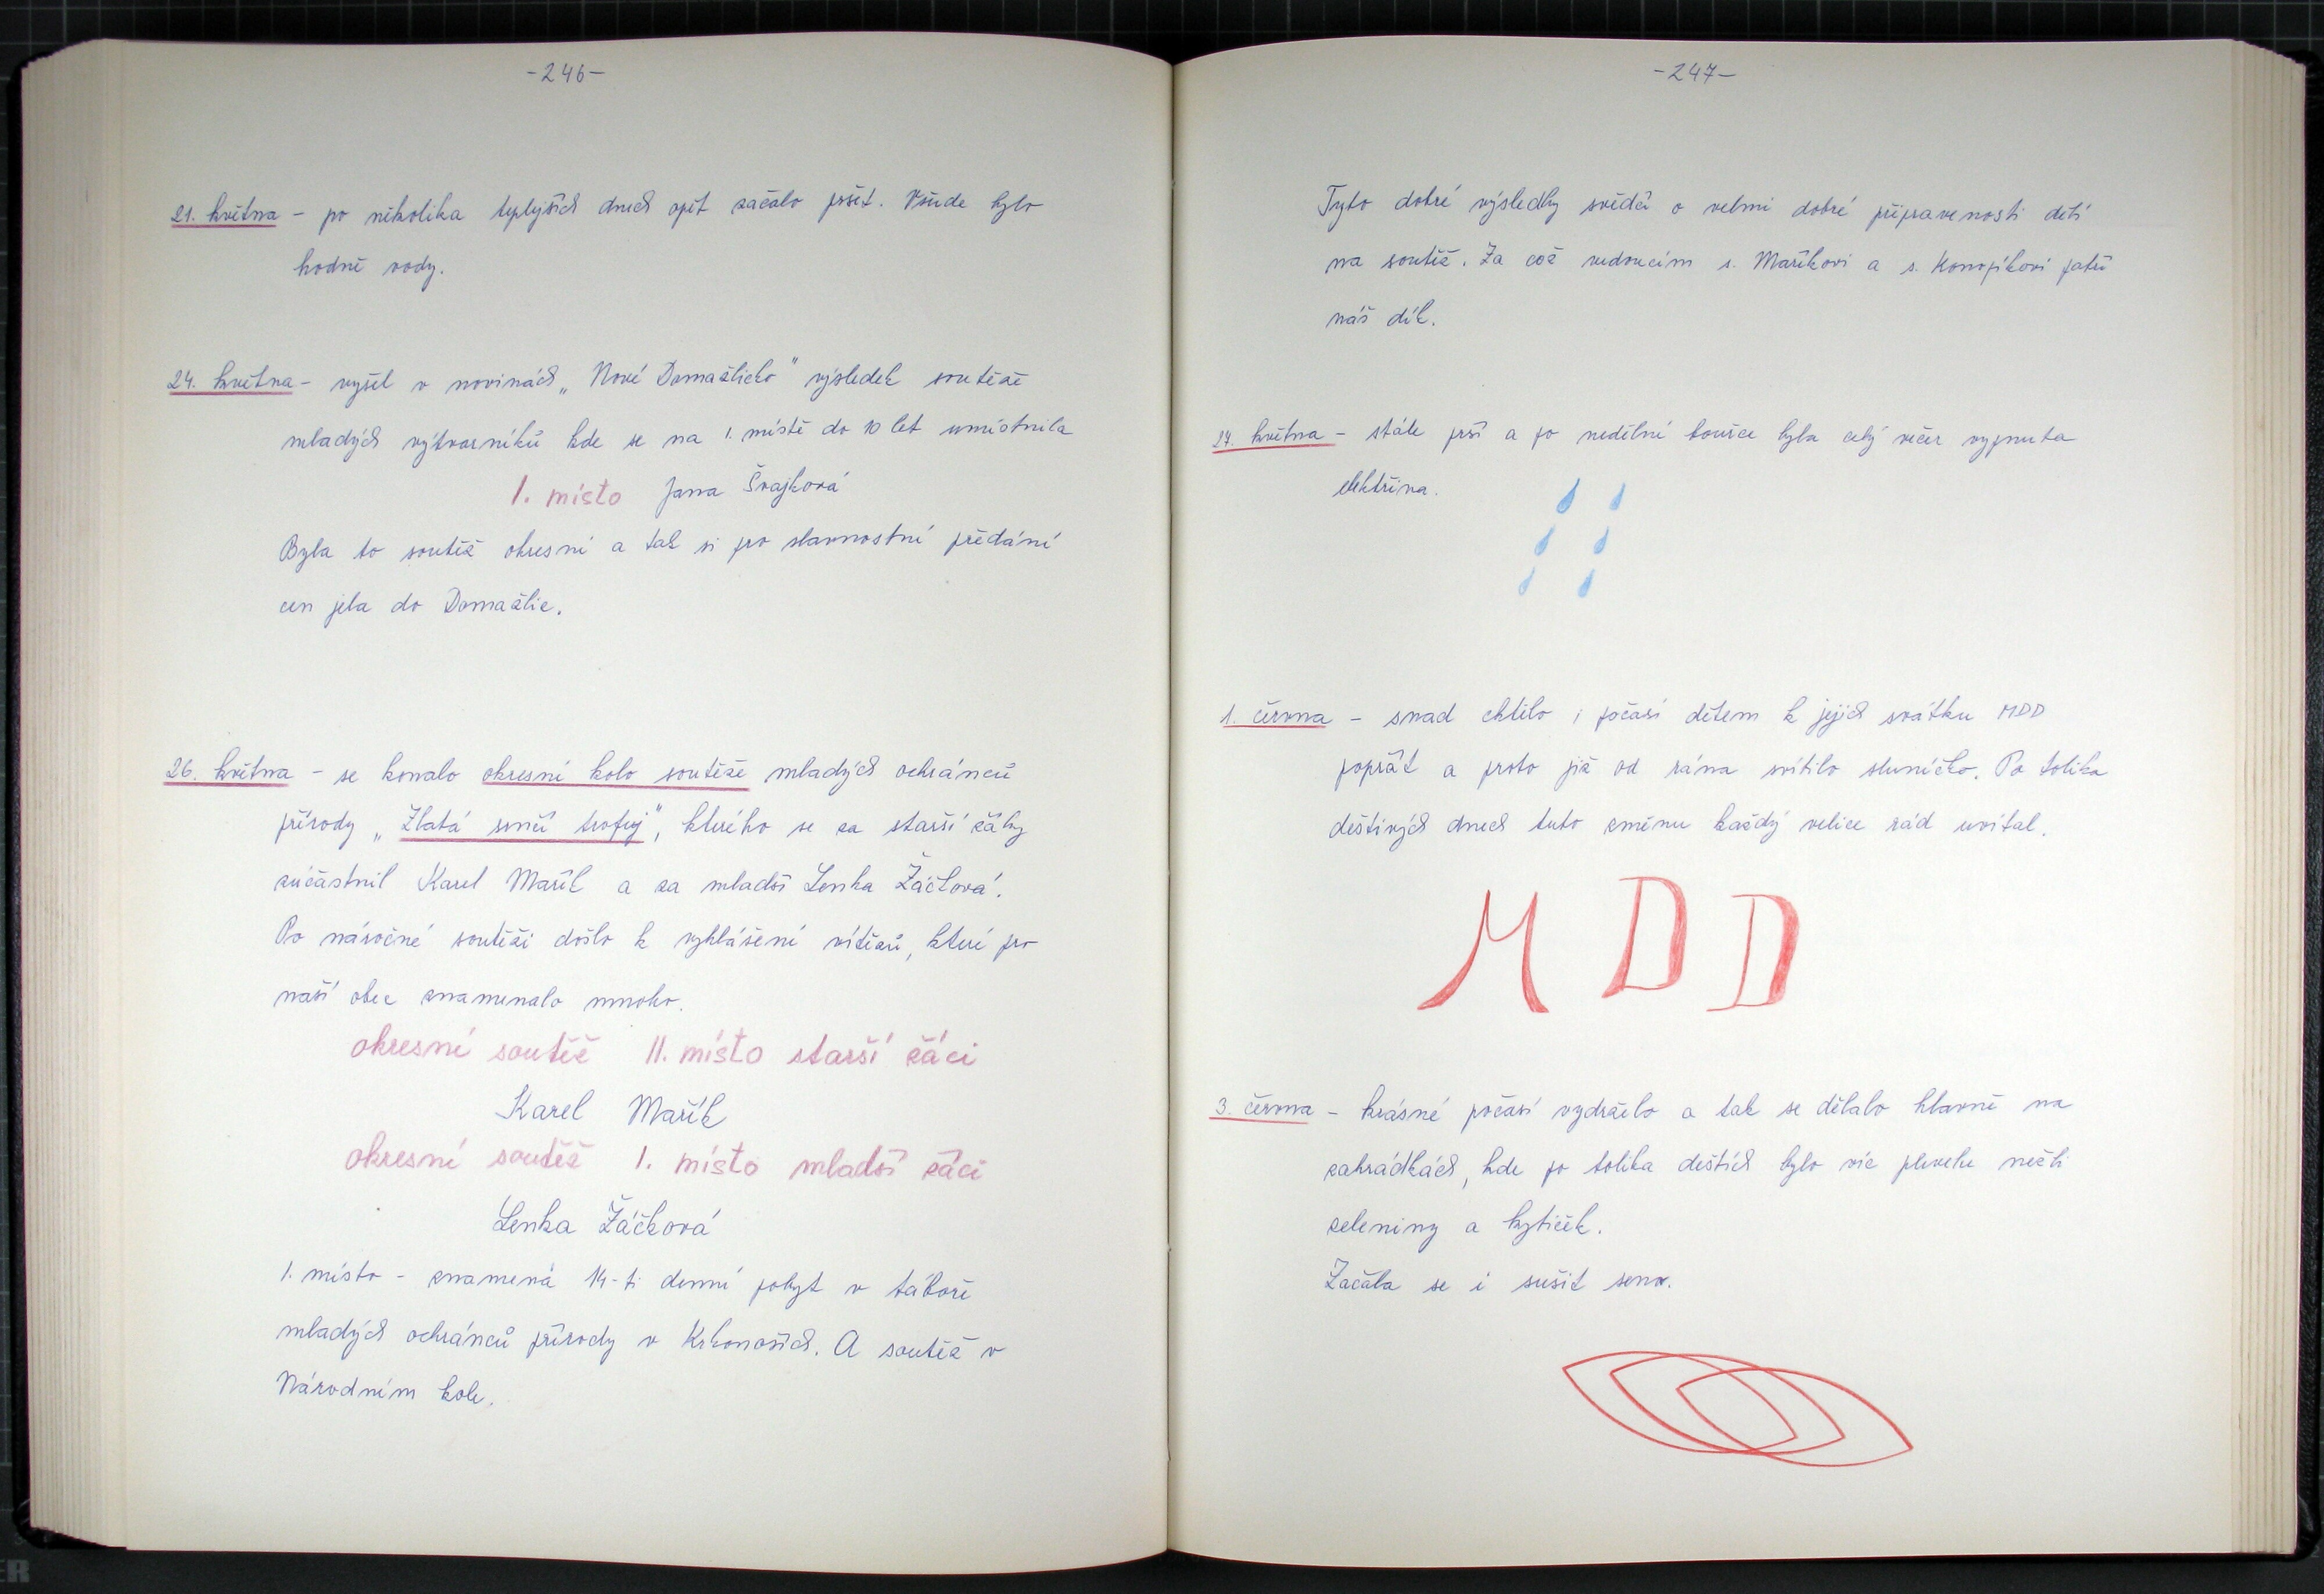 -246-
21. května - po několika teplejších dnech opět začalo pršet. Všude bylo
hodně vody.
24. května - vyšel v novinách „Nové Domažlicko" výsledek soutěže
mladých výtvarníků kde se na 1. místě do 10 let umístnila
1. místo Jana Švajková
Byla to soutěž okresní a tak si pro slavnostní předání
cen jela do Domažlic.
26. května - se konalo okresní kolo soutěže mladých ochránců
přírody „Zlatá srnčí trofej", kterého se za starší žáky
zúčastnil Karel Mařík a za mladší Lenka Žáčková.
Po náročné soutěži došlo k vyhlášení vítězů, které pro
naší obec znamenalo mnoho.
okresní soutěž II. místo starší žáci
Karel Mařík
okresní soutěž 1. místo mladší žáci
Lenka Žáčková
1. místo - znamená 14-ti denní pobyt v táboře
mladých ochránců přírody v Krkonoších. A soutěž v
Národním kole.
-247-
Tyto dobré výsledky svědčí o velmi dobré připravenosti dětí
na soutěž. Za což vedoucím s. Maříkovi a s. Konopíkovi patří
náš dík.
27. května - stále prší a po nedělní bouřce byla celý večer vypnuta
elektřina.
1. června - snad chtělo i počasí dětem k jejich svátku MDD
popřát a proto již od rána svítilo sluníčko. Po tolika
deštivých dnech tuto změnu každý velice rád uvítal.
MDD
3. června - krásné počasí vydrželo a tak se dělalo hlavně na
zahrádkách, kde po tolika deštích bylo víc plevele nežli
zeleniny a kytiček.
Začala se i sušit seno.